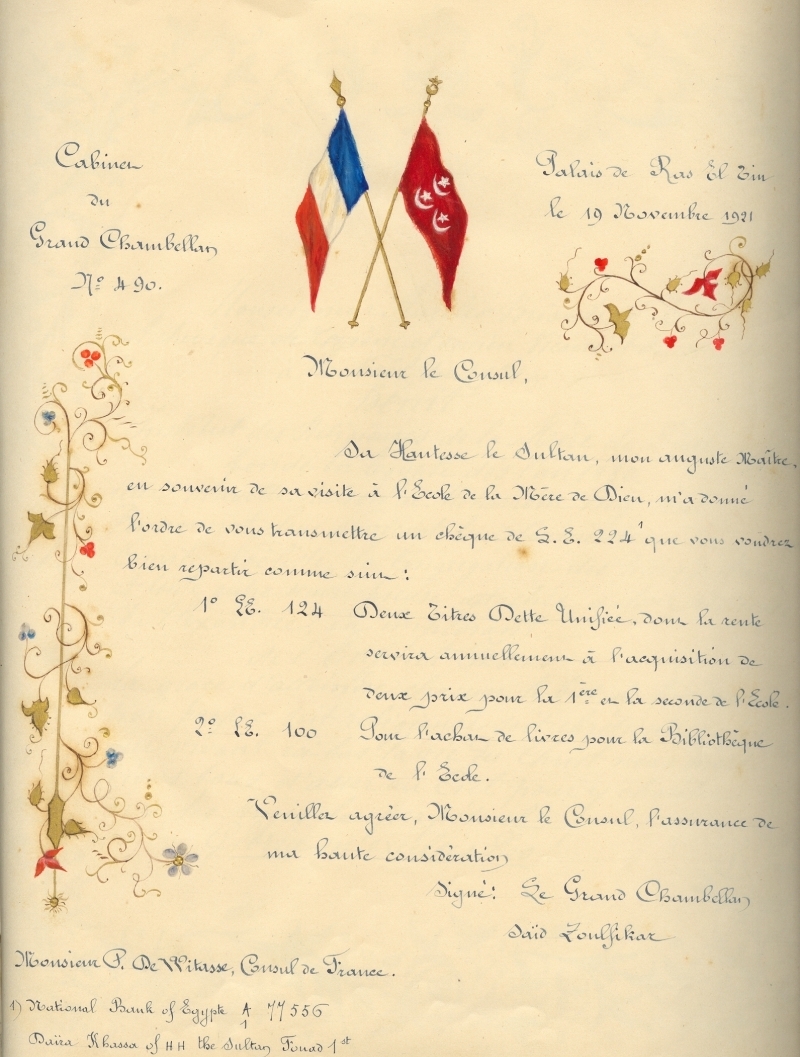 Cabinet
du
Grand Chambellan
N° 490.
Palais de Ras El Tin
le 19 Novembre 1921
Monsieur le Consul,
Sa Hautesse le Sultan, mon auguste Maître,
en souvenir de sa visite à l'Ecole de la Mère de Dieu, m'a donné
l'ordre de vous transmettre un chèque de L.E. 224¹ que vous voudrez
bien repartir comme suit :
1° LE. 124 Deux Titres Dette Unifiée, dont la rente
servira annuellement à l'acquisition de
deux prix pour la 1ère et la seconde de l'Ecole.
2° LE. 100 Pour l'achat de livres pour la Bibliothèque
de l'Ecole.
Veuillez agréer, Monsieur le Consul, l'assurance de
ma haute considération
Signé: Le Grand Chambellan
Saïd Zoulfikar
Monsieur P. De Witasse, Consul de France.
1) National Bank of Egypte A/1 77556
Daïra Khassa of HH the Sultan Fouad 1st